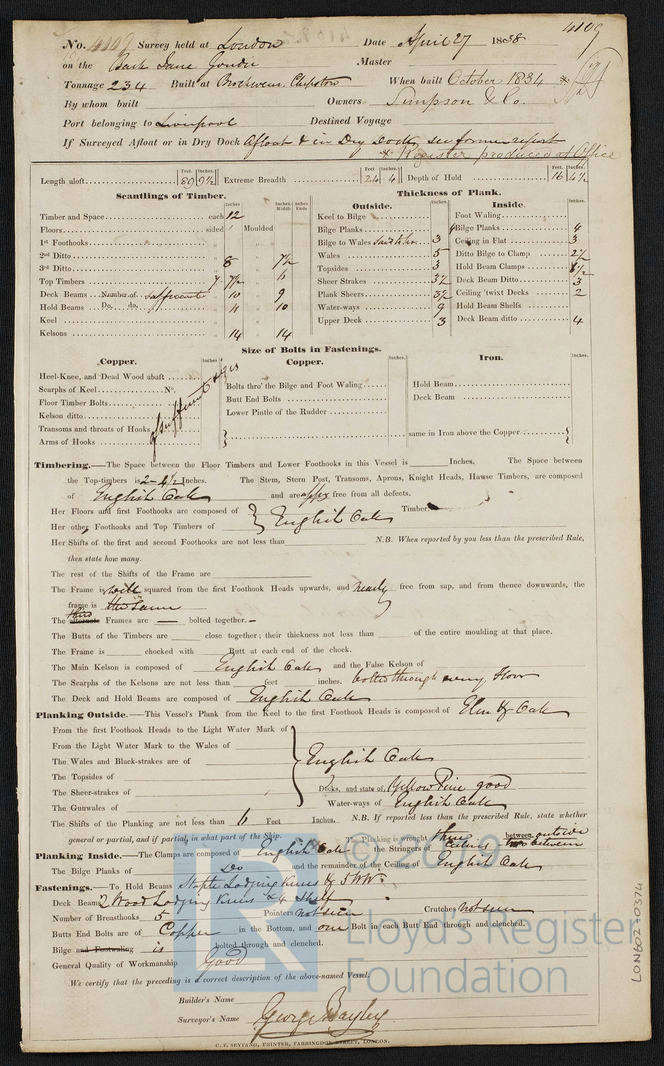 4109
No. 4109 Survey held at London Date April 27 1838
on the Bark Jane Goudie Master
Tonnage 234 Built at Chepstow When built October 1834
By whom built Owners Simpson & Co.
Port belonging to Liverpool Destined Voyage
If Surveyed Afloat or in Dry Dock Afloat & in Dry Dock, see former report
Register produced at Office
Length aloft 89 9½ Extreme Breadth 24 4 Depth of Hold 16 4½
Scantlings of Timber.
Timber and Space each 12
Floors sided Moulded
1st Foothooks
2nd Ditto
3rd Ditto 8 7½
Top Timbers 7 7½ 6
Deck Beams Number of sufficient 10 9
Hold Beams Do. do. 11 10
Keel
Kelsons 14 14
Thickness of Plank.
Outside.
Keel to Bilge
Bilge Planks
Bilge to Wales 3
Wales 5
Topsides 3
Sheer Strakes 3½
Plank Sheers 3½
Water-ways 9
Upper Deck 3
Inside.
Foot Waling
Bilge Planks 4
Ceiling in Flat 3
Ditto Bilge to Clamp 2½
Hold Beam Clamps
Deck Beam Ditto 3
Ceiling 'twixt Decks 2
Hold Beam Shelfs
Deck Beam ditto 4
Size of Bolts in Fastenings.
Copper.
Heel-Knee, and Dead Wood abaft
Scarphs of Keel No.
Floor Timber Bolts
Kelson ditto
Transoms and throats of Hooks
Arms of Hooks
of sufficient
Copper.
Bolts thro' the Bilge and Foot Waling
Butt End Bolts
Lower Pintle of the Rudder
Iron.
Hold Beam
Deck Beam
same in Iron above the Copper
Timbering.—The Space between the Floor Timbers and Lower Foothooks in this Vessel is Inches. The Space between
the Top-timbers is 2-4½ Inches. The Stem, Stern Post, Transoms, Aprons, Knight Heads, Hawse Timbers, are composed
of English Oak and are free from all defects.
Her Floors and first Foothooks are composed of Timber
Her other Foothooks and Top Timbers of English Oak
Her Shifts of the first and second Foothooks are not less than N.B. When reported by you less than the prescribed Rule,
then state how many.
The rest of the Shifts of the Frame are
The Frame is well squared from the first Foothook Heads upwards, and nearly free from sap, and from thence downwards, the
frame is the same
The alternate Frames are — bolted together.
The Butts of the Timbers are close together; their thickness not less than of the entire moulding at that place.
The Frame is chocked with Butt at each end of the chock.
The Main Kelson is composed of English Oak and the False Kelson of
The Scarphs of the Kelsons are not less than feet inches. bolted through every Floor
The Deck and Hold Beams are composed of English Oak
Planking Outside.—This Vessel's Plank from the Keel to the first Foothook Heads is composed of Elm & Oak
From the first Foothook Heads to the Light Water Mark of
From the Light Water Mark to the Wales of
The Wales and Black-strakes are of English Oak
The Topsides of
The Sheer-strakes of Decks, and state of, Yellow Pine good
The Gunwales of Water-ways of English Oak
The Shifts of the Planking are not less than 6 Feet Inches. N.B. If reported less than the prescribed Rule, state whether
general or partial, and if partial, in what part of the Ship. The Planking is wrought three between outside
Planking Inside.—The Clamps are composed of English Oak the Stringers of two between
The Bilge Planks of Do and the remainder of the Ceiling of English Oak
Fastenings.—To Hold Beams Staple Lodging Knees &
Deck Beams 2 Wood Lodging Knees & Shelf
Number of Breasthooks 5 Pointers not seen Crutches not seen
Butts End Bolts are of Copper in the Bottom, and one Bolt in each Butt End through and clenched.
Bilge and Footwaling is bolted through and clenched.
General Quality of Workmanship Good
We certify that the preceding is a correct description of the above-named Vessel,
Builder's Name
Surveyor's Name George Bayley
C. F. SEYFANG, PRINTER, FARRINGDON STREET, LONDON.
LON602-0374
LR
Lloyd's Register
Foundation